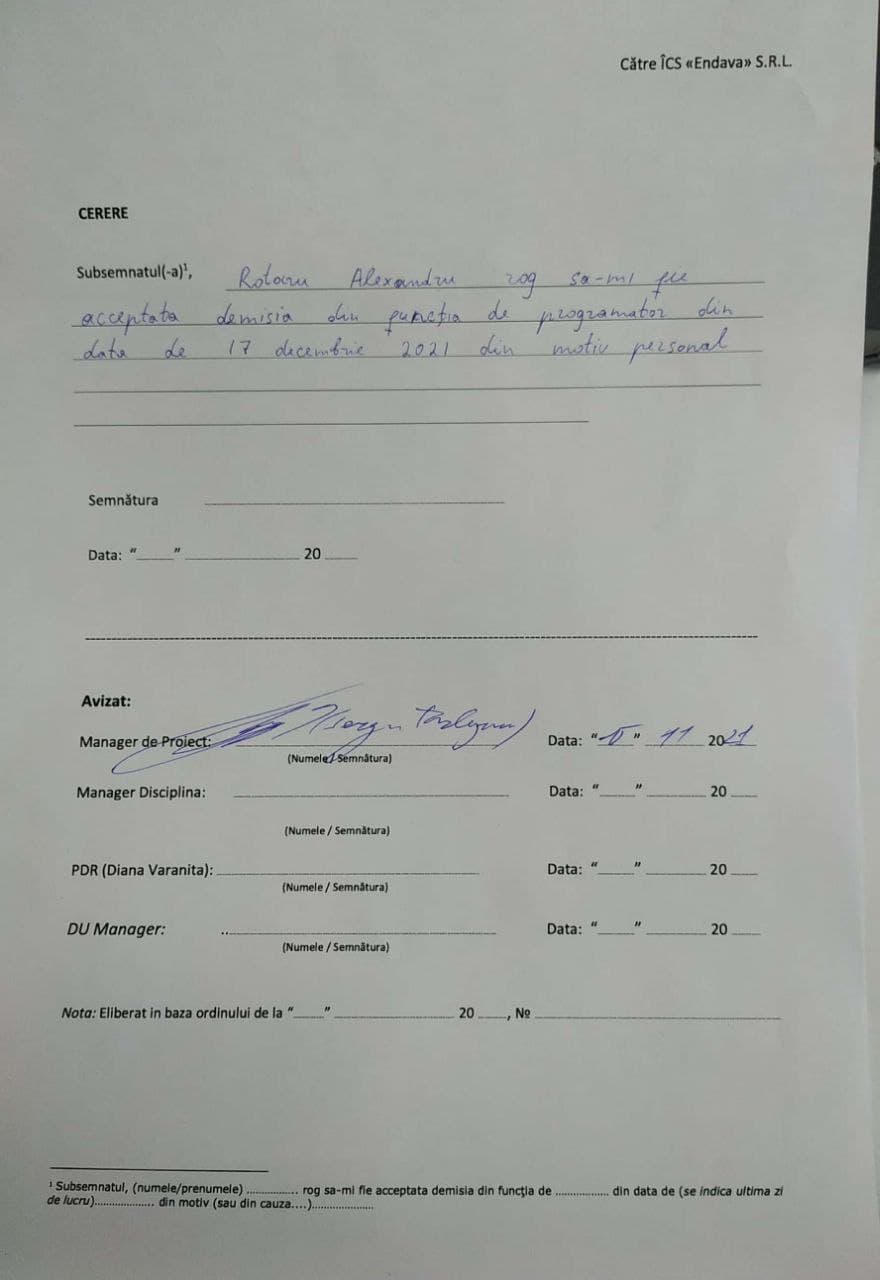 Către ÎCS «Endava» S.R.L.
CERERE
Subsemnatul(-a)¹, Rotaru Alexandru rog sa-mi fie
acceptata demisia din funcția de programator din
data de 17 decembrie 2021 din motiv personal
Semnătura
Data: “____” ____________ 20 ____
Avizat:
Manager de Proiect: Data: “ ” 11 2021
(Numele / Semnătura)
Manager Disciplina: ____________ Data: “____” ________ 20 ____
(Numele / Semnătura)
PDR (Diana Varanita): ____________ Data: “____” ________ 20 ____
(Numele / Semnătura)
DU Manager: .. ____________ Data: “____” ________ 20 ____
(Numele / Semnătura)
Nota: Eliberat in baza ordinului de la “____” ____________ 20 ____, № ____________
¹ Subsemnatul, (numele/prenumele) ................ rog sa-mi fie acceptata demisia din funcţia de ................ din data de (se indica ultima zi
de lucru).................. din motiv (sau din cauza....)..................